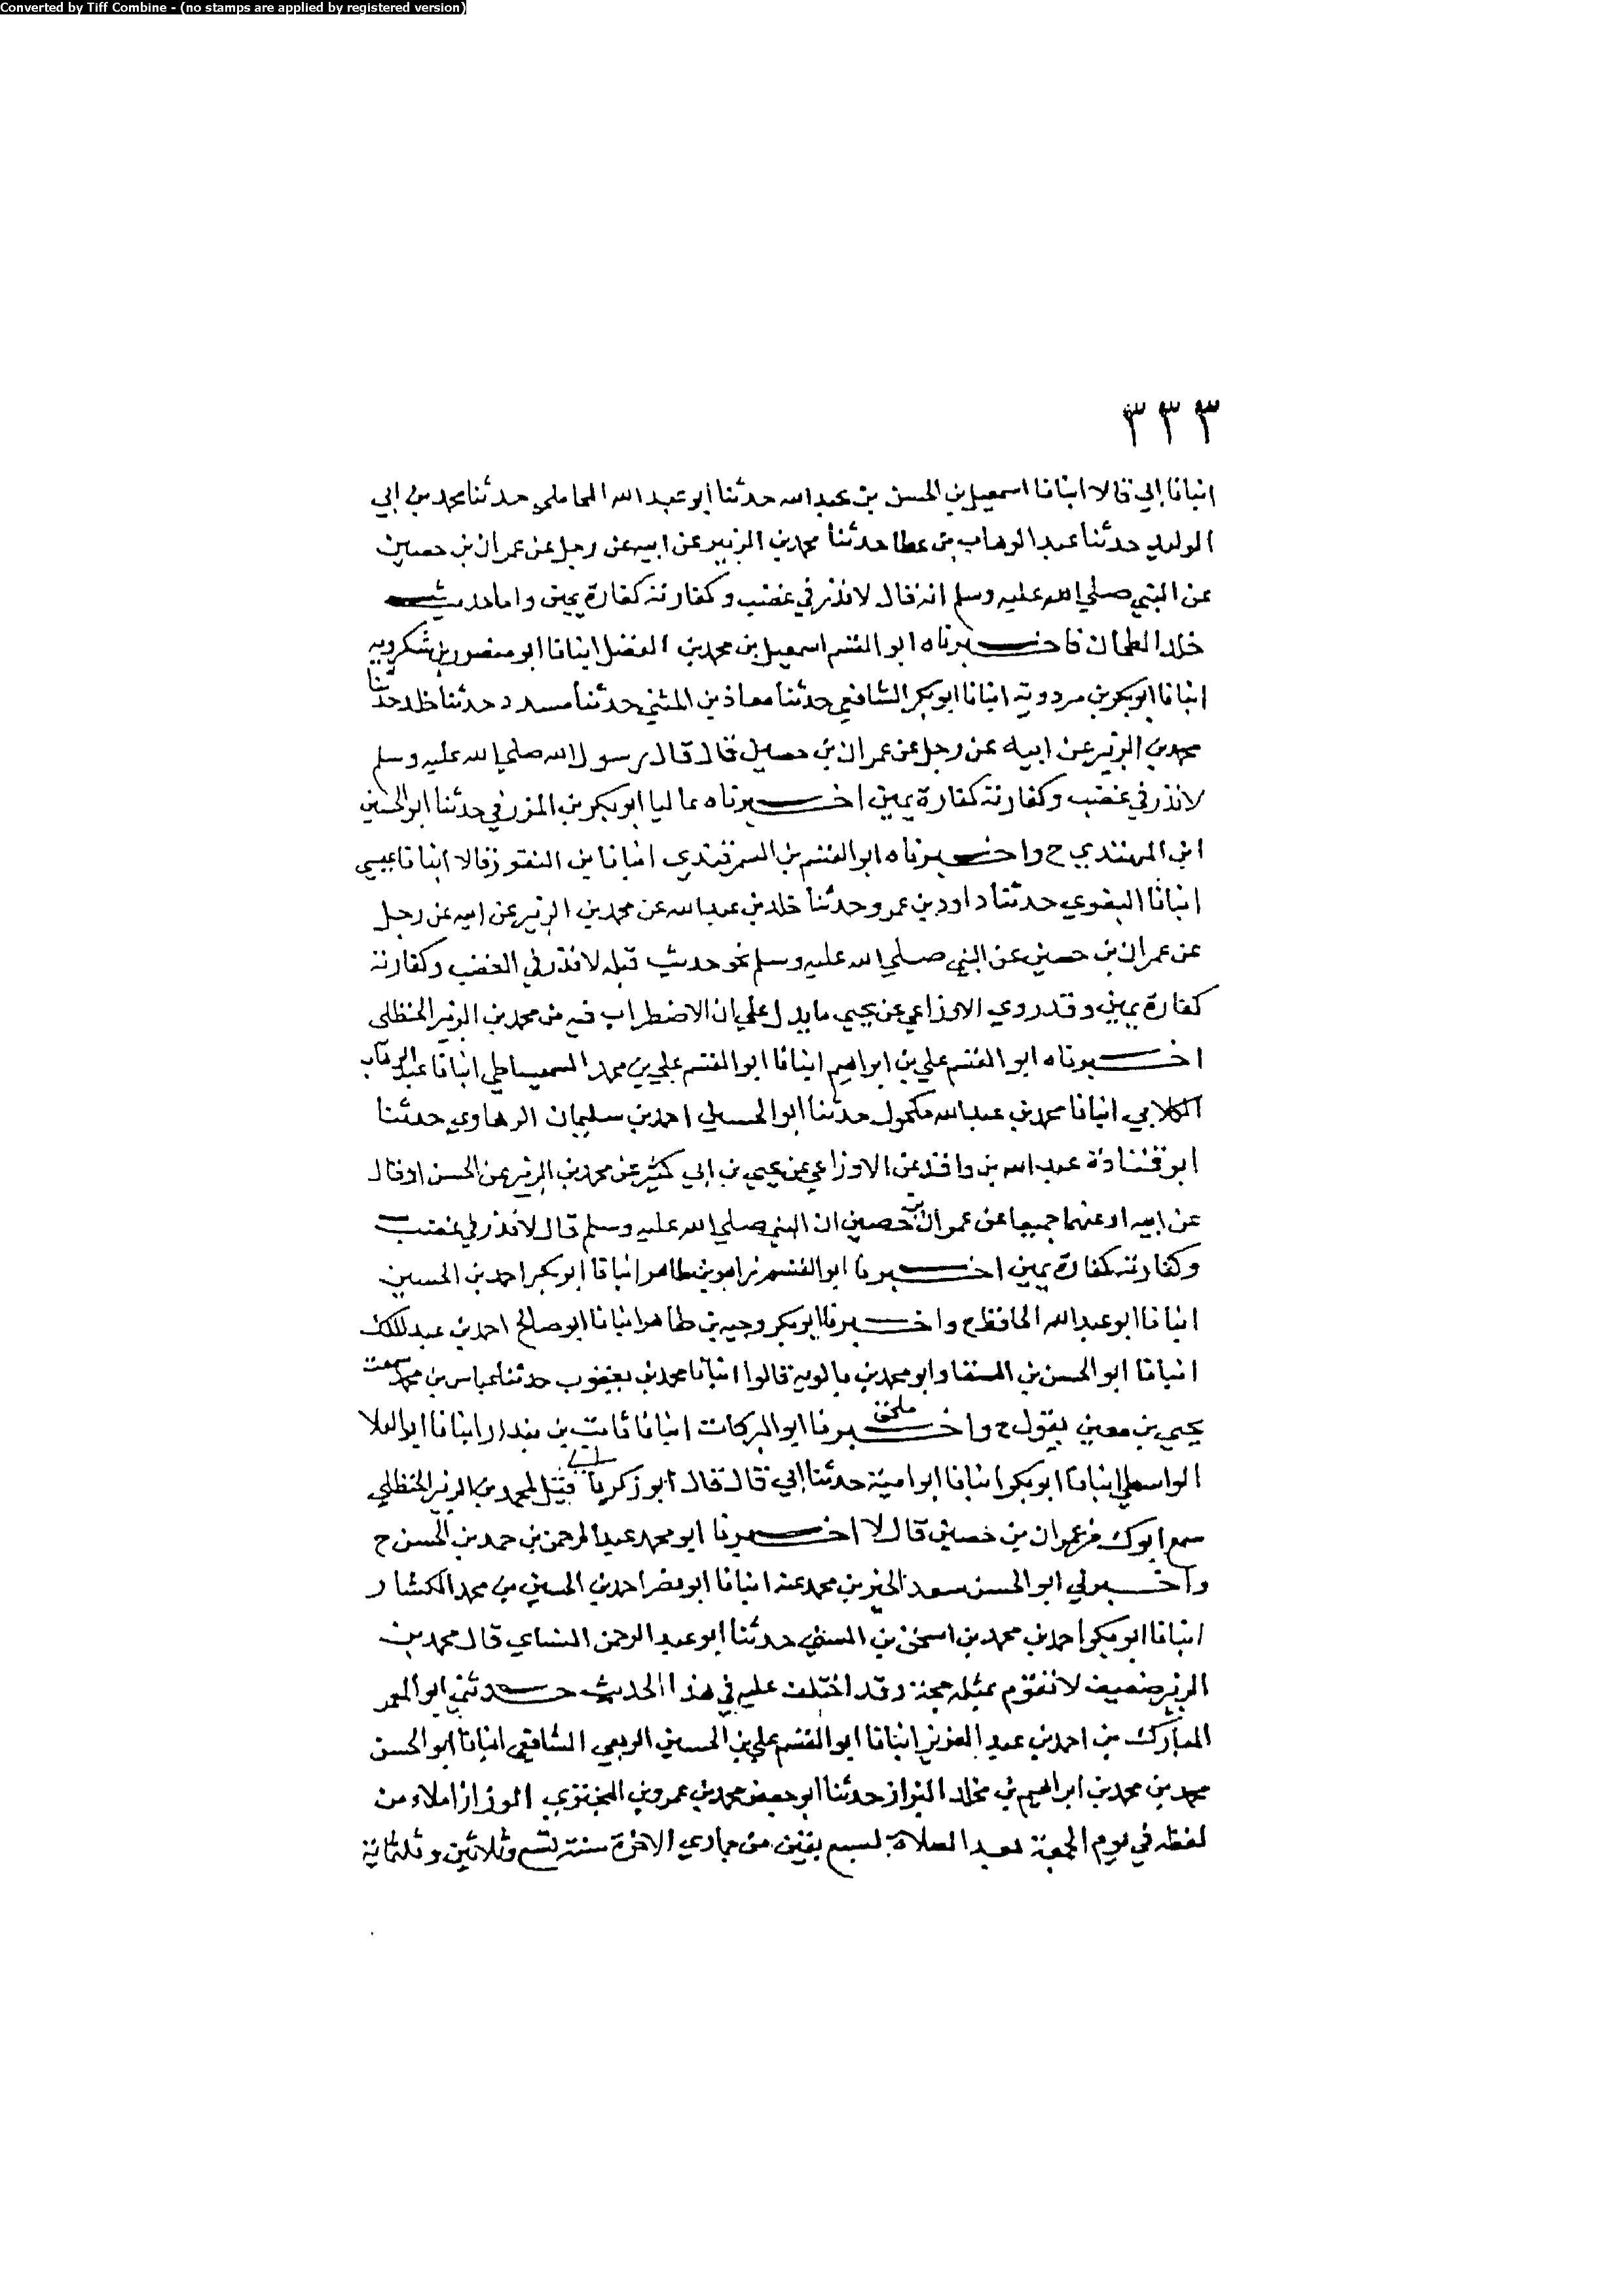 Converted by Tiff Combine - (no stamps are applied by registered version)
٣٣٣
انبانا ابي قالا انبانا اسمعيل بن الحسن بن عبد الله حدثنا ابو عبد الله المحاملي حدثنا محمد بن ابي
الوليد حدثنا عبد الوهاب بن عطا حدثنا محمد بن الزبير عن ابيه عن رجل عن عمران بن حصين
عن النبي صلي الله عليه وسلم انه قال لا نذر في غضب وكفارته كفارة يمين واما حديث
خلد الطحان فاخبرناه ابو القسم اسمعيل بن محمد بن الفضل انبانا ابو منصور بن شكرويه
انبانا ابو بكر بن مردويه انبانا ابو بكر الشافعي حدثنا معاذ بن المثني حدثنا مسدد حدثنا خلد حدثنا
محمد بن الزبير عن ابيه عن رجل عن عمران بن حصين قال قال رسول الله صلي الله عليه وسلم
لا نذر في غضب وكفارته كفارة يمين اخبرناه عاليا ابو بكر بن المزرفي حدثنا ابو الحسين
ابن المهتدي ح واخبرناه ابو القسم بن السمرقندي انبانا بن النقور قالا انبانا عيسي
انبانا البغوي حدثنا داود بن عمرو حدثنا خلد بن عبد الله عن محمد بن الزبير عن ابيه عن رجل
عن عمران بن حصين عن النبي صلي الله عليه وسلم نحو حديث قبله لا نذر في الغضب وكفارته
كفارة يمين وقد روي الاوزاعي عن يحيي ما يدل علي ان الاضطراب فيه من محمد بن الزبير الحنظلي
اخبرناه ابو القسم علي بن ابراهيم انبانا ابو القسم علي بن محمد السميساطي انبانا عبد الوهاب
الكلابي انبانا محمد بن عبد الله مكحول حدثنا ابو الحسين احمد بن سليمان الرهاوي حدثنا
ابو قتادة عبد الله بن واقد عن الاوزاعي عن يحيي بن ابي كثير عن محمد بن الزبير عن الحسن او قال
عن ابيه او عنهما جميعا عن عمران بن حصين ان النبي صلي الله عليه وسلم قال لا نذر في غضب
وكفارته كفارة يمين اخبرنا ابو القسم زاهر بن طاهر انبانا ابو بكر احمد بن الحسين
انبانا ابو عبد الله الحافظ ح واخبرنا ابو بكر وجيه بن طاهر انبانا ابو صالح احمد بن عبد الملك
انبانا ابو الحسن بن السقا وابو محمد بن بالويه قالوا انبانا محمد بن يعقوب حدثنا عباس بن محمد سمعت
يحيي بن معين يقول ح واخبرنا ابو البركات انبانا ثابت بن بندار انبانا ابو العلا
الواسطي انبانا ابو بكر انبانا ابو امية حدثنا ابي قال قال ابو زكريا قيل لمحمد بن الزبير الحنظلي
سمع ابوك من عمران بن حصين قال لا اخبرنا ابو محمد عبد الرحمن بن حمد بن الحسن ح
واخبرني ابو الحسن سعد الخير بن محمد عنه انبانا ابو نصر احمد بن الحسين بن محمد الكشار
انبانا ابو بكر احمد بن محمد بن اسحق بن السني حدثنا ابو عبد الرحمن النساي قال محمد بن
الزبير ضعيف لا تقوم بمثله حجة وقد اختلف عليه في هذا الحديث حدثني ابو المعمر
المبارك بن احمد بن عبد العزيز انبانا ابو القسم علي بن الحسين الربعي الشافعي انبانا ابو الحسن
محمد بن محمد بن ابراهيم بن مخلد البزاز حدثنا ابو جعفر محمد بن عمرو بن البختري الرزاز املاء من
لفظه في يوم الجمعة بعد الصلاة لسبع بقين من جمادي الاخرة سنة تسع وثلاثين وثلثمائة